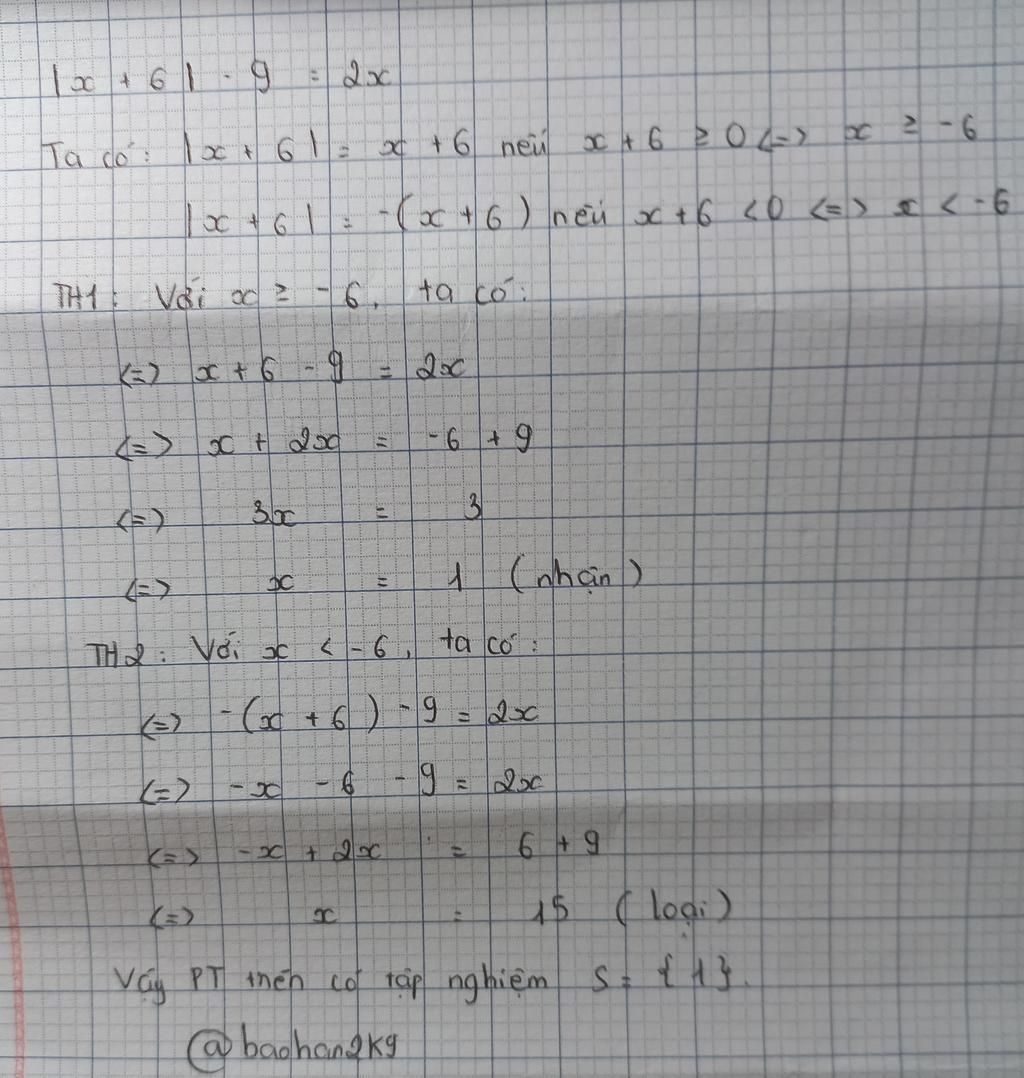 |x + 6| - 9 = 2x
Ta có: |x + 6| = x + 6 nếu x + 6 ≥ 0 <=> x ≥ -6
|x + 6| = -(x + 6) nếu x + 6 < 0 <=> x < -6
TH1: Với x ≥ -6, ta có:
<=> x + 6 - 9 = 2x
<=> x + 2x = -6 + 9
<=> 3x = 3
<=> x = 1 (nhận)
TH2: Với x < -6, ta có:
<=> -(x + 6) - 9 = 2x
<=> -x - 6 - 9 = 2x
<=> -x + 2x = 6 + 9
<=> x = 15 (loại)
Vậy PT trên có tập nghiệm S = {1}.
@baohan2k9